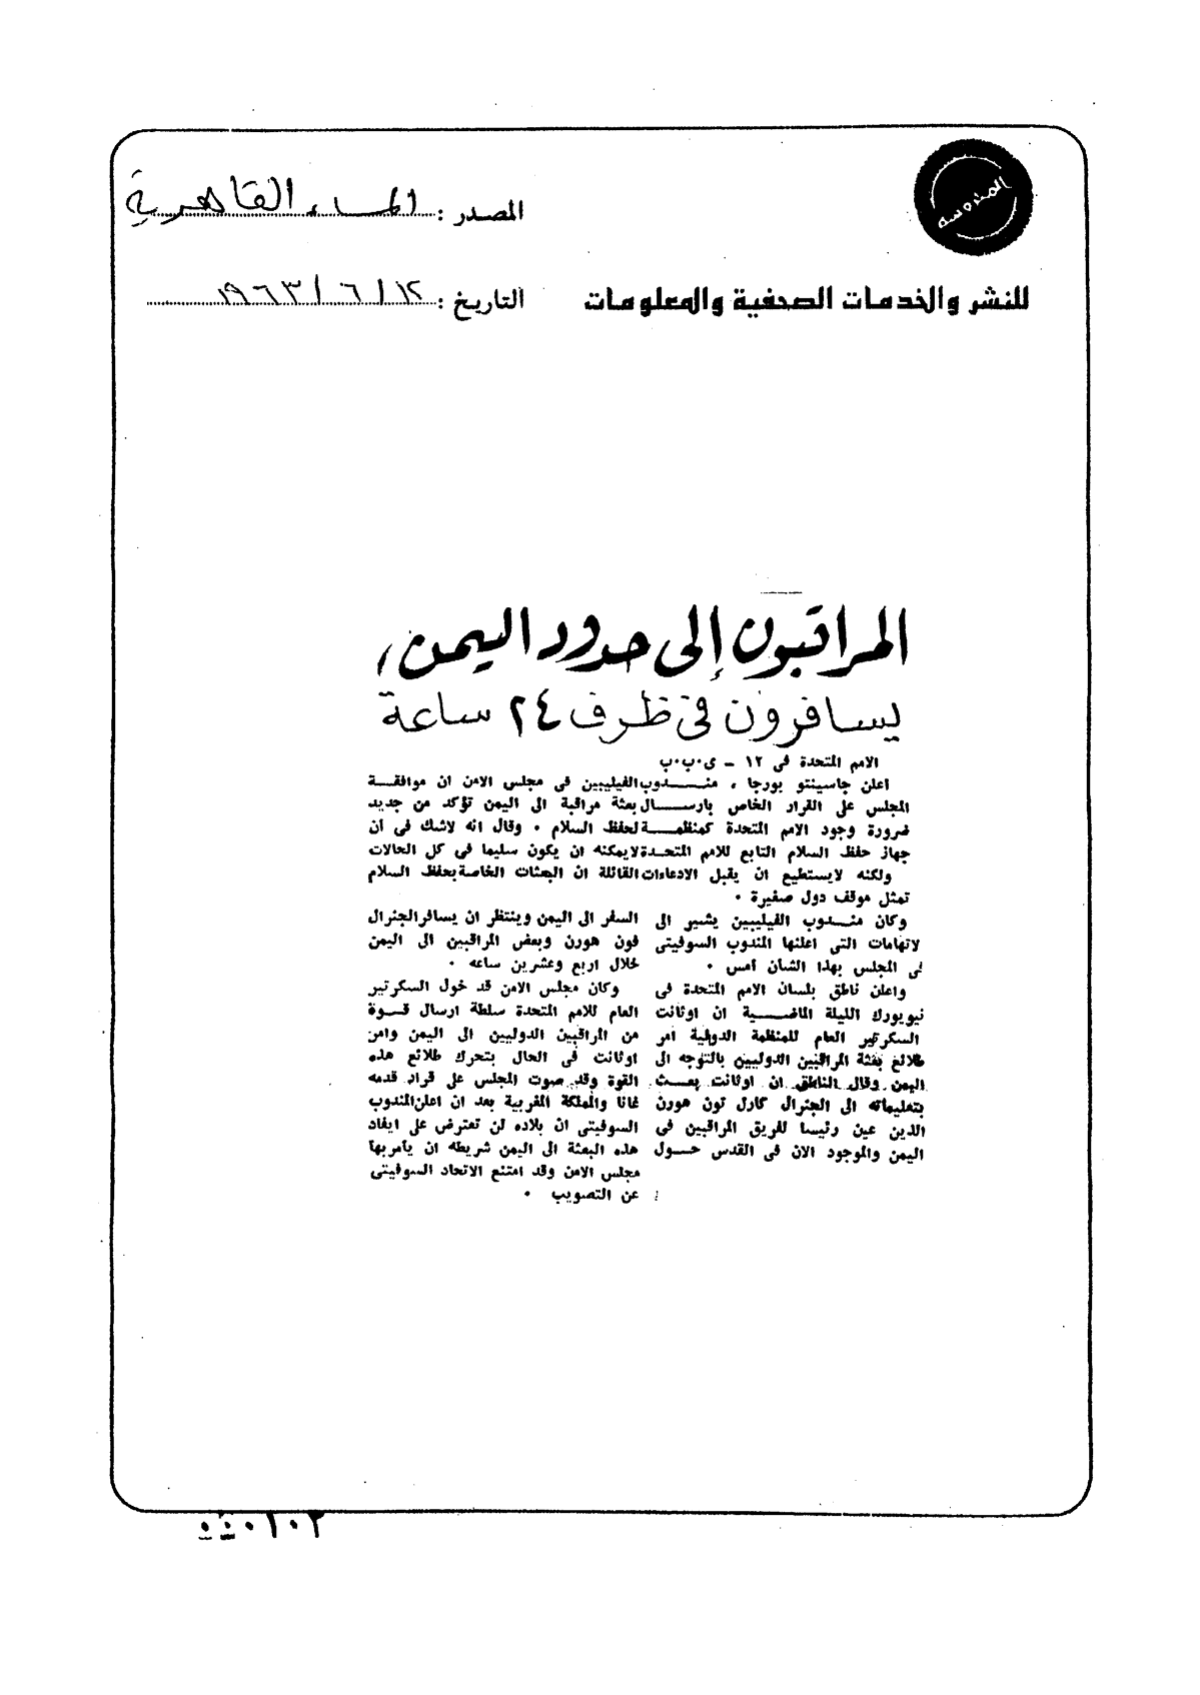 المحروسة
المصدر : المساء القاهرية
للنشر والخدمات الصحفية والمعلومات
التاريخ : ١٢ / ٦ / ١٩٦٣
المراقبون إلى حدود اليمن ،
يسافرون فى ظرف ٢٤ ساعة
الامم المتحدة فى ١٢ ـ ى٠ب٠ب
اعلن جاسينتو بورجا ، منــدوب الفيليبين فى مجلس الامن ان موافقــة
المجلس على القرار الخاص بارســال بعثة مراقبة الى اليمن تؤكد من جديد
ضرورة وجود الامم المتحدة كمنظمــة لحفظ السلام ٠ وقال انه لاشك فى أن
جهاز حفظ السلام التابع للامم المتحـدة لايمكنه ان يكون سليما فى كل الحالات
ولكنه لايستطيع ان يقبل الادعاءات القائلة ان البعثات الخاصة بحفظ السلام
تمثل موقف دول صغيرة ٠
وكان منــدوب الفيليبين يشير الى
لاتهامات التى اعلنها المندوب السوفيتى
فى المجلس بهذا الشأن أمس ٠
واعلن ناطق بلسان الامم المتحدة فى
نيويورك الليلة الماضــية ان اوثانت
السكرتير العام للمنظمة الدولية أمر
طلائع بعثة المراقبين الدوليين بالتوجه الى
اليمن وقال الناطق ان اوثانت بعــث
بتعليماته الى الجنرال كارل تون هورن
الذين عين رئيسا لفريق المراقبين فى
اليمن والموجود الان فى القدس حــول
السفر الى اليمن وينتظر ان يسافر الجنرال
فون هورن وبعض المراقبين الى اليمن
خلال اربع وعشرين ساعه ٠
وكان مجلس الامن قد خول السكرتير
العام للامم المتحدة سلطة ارسال قــوة
من المراقبين الدوليين الى اليمن وامر
اوثانت فى الحال بتحرك طلائع هذه
القوة وقد صوت المجلس على قرار قدمه
غانا والمملكة المغربية بعد ان اعلن المندوب
السوفيتى ان بلاده لن تعترض على ايفاد
هذه البعثة الى اليمن شريطه ان يأمر بها
مجلس الامن وقد امتنع الاتحاد السوفيتى
عن التصويب ٠